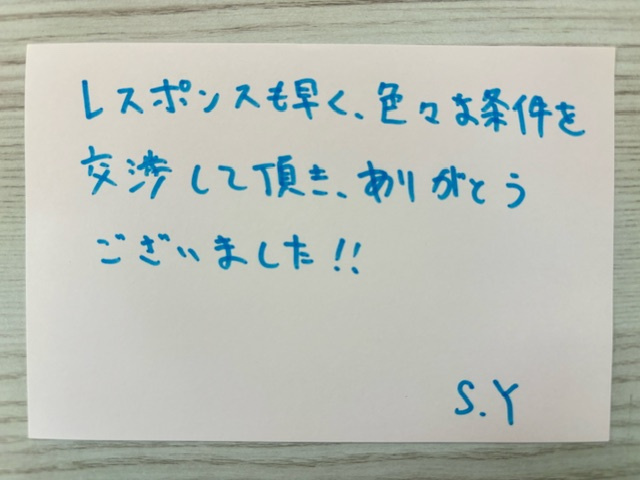 レスポンスも早く、色々な条件を
交渉して頂き、ありがとう
ございました!!
S.Y